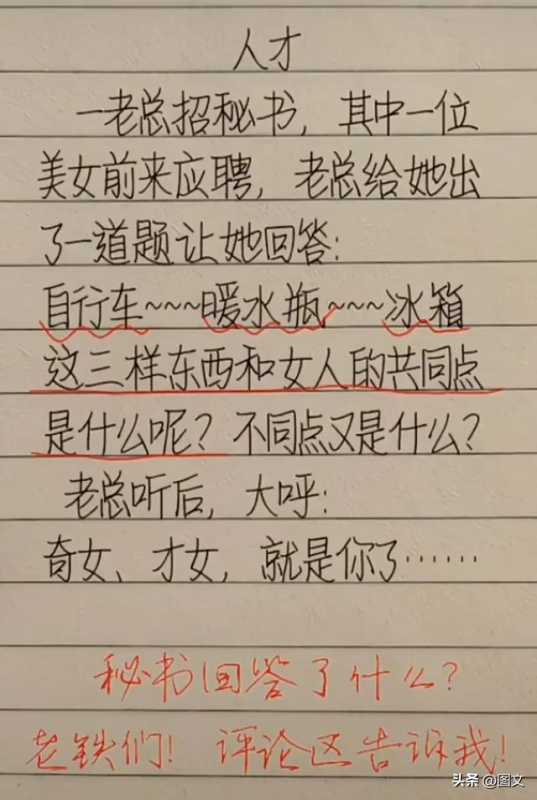 人才
一老总招秘书，其中一位
美女前来应聘，老总给她出
了一道题让她回答：
自行车~~~暖水瓶~~~冰箱
这三样东西和女人的共同点
是什么呢？不同点又是什么？
老总听后，大呼：
奇女、才女，就是你了……
秘书回答了什么？
老铁们！评论区告诉我！
头条 @图文